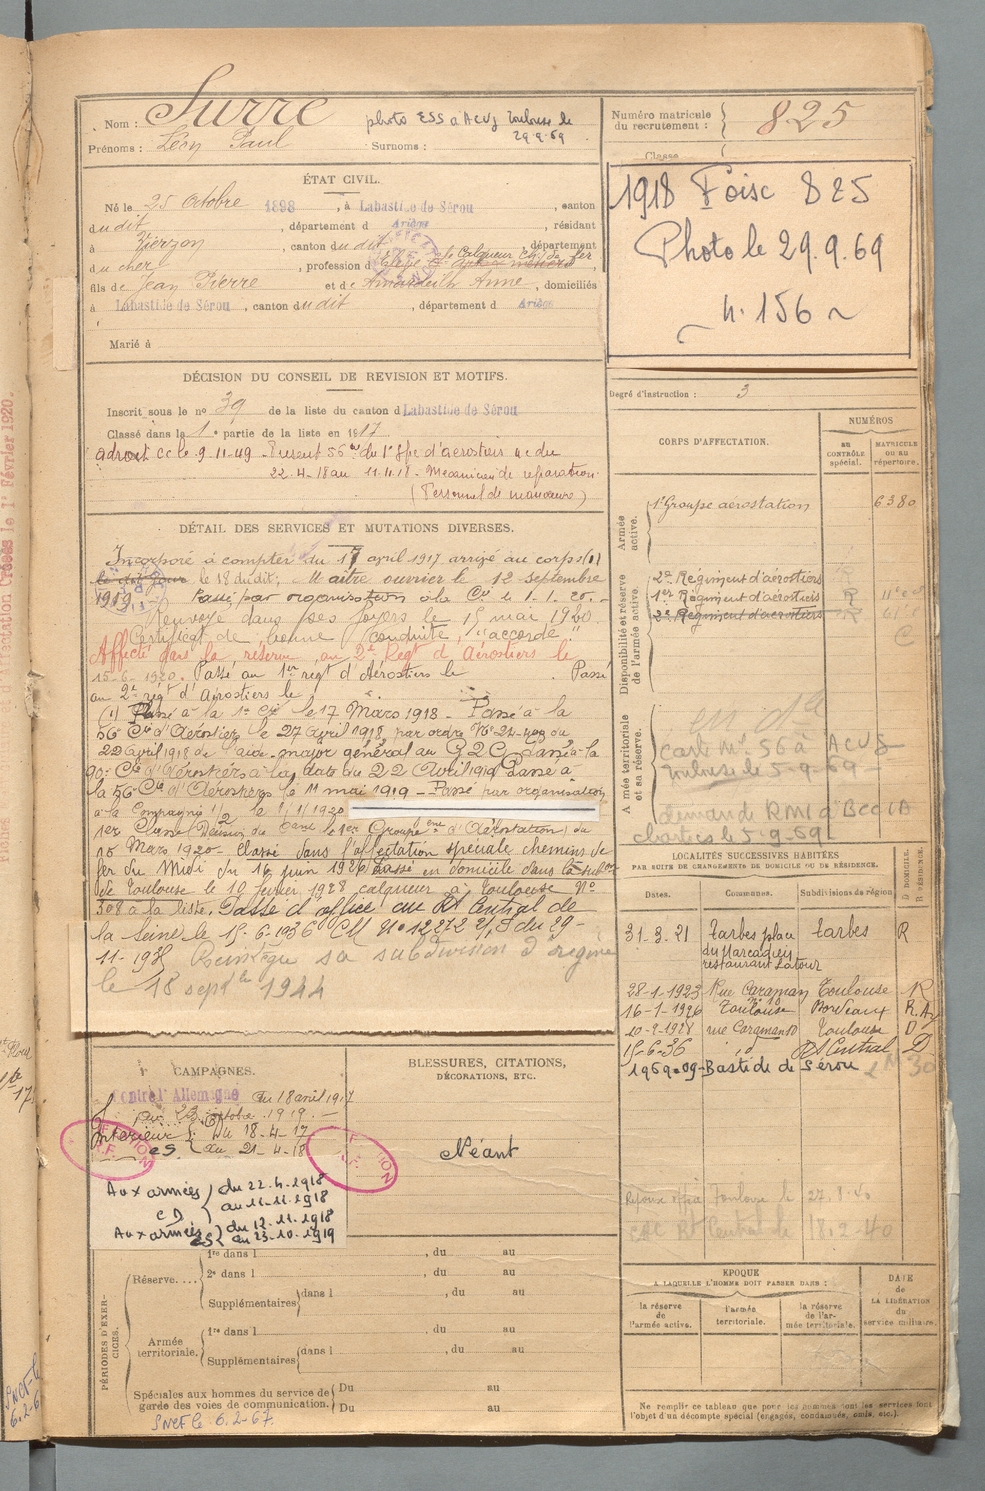 Nom : Surre
photo ESS a ACVG Toulouse le
29.9.69
Prénoms : Léon Paul Surnoms :
ÉTAT CIVIL.
Né le 25 Octobre 1898, à Labastide de Sérou, canton
dudit, département d Ariège, résidant
à Vierzon, canton dudit, département
du cher, profession d
fils de Jean Pierre et de Amardeilh Anne, domiciliés
à Labastide de Sérou, canton dudit, département d Ariège
Marié à
DÉCISION DU CONSEIL DE REVISION ET MOTIFS.
Inscrit sous le no 39 de la liste du canton d Labastide de Sérou
Classé dans la 1e partie de la liste en 1917
a droit CC le 9-11-49
22-4-18 au 11-11-18 - Mecanicien de reparation
(Personnel de manœuvre)
DÉTAIL DES SERVICES ET MUTATIONS DIVERSES.
Incorporé à compter du 17 avril 1917 arrivé au corps (1)
le dit jour le 18 dudit; Maitre ouvrier le 12 septembre
1919. Passé par organisation à la Cie le 1.1.20.
Renvoyé dans ses foyers le 15 mai 1920.
Certificat de bonne conduite, "accordé"
Affecté dans la réserve au 2e Regt d'Aérostiers le
15-6-1920. Passé au 1er régt d'Aérostiers le . Passé
au 2e régt d'Aérostiers le
(1) Passé à la 1e Cie le 17 Mars 1918 - Passé à la
56 Cie d'Aérostiers le 27 avril 1918 par ordre No 24-409 du
22 avril 1918 de l'aide-major général au G.Q.G. Passé à la
90e Cie d'Aérostiers à la date du 22 Avril 1919 Passé à
la 56 Cie d'Aérostiers le 11 mai 1919 - Passé par organisation
à la Compagnie 1/2 le 1/1/1920
1er Classe (Décision du Cant le 1er Groupe d'Aérostation) du
15 Mars 1920 - Classé dans l'affectation speciale chemins de
fer du Midi du 16 juin 1926 Passé en domicile dans la subon
de Toulouse le 10 fevrier 1928 calqueur à Toulouse No
308 à la liste. Passé d'office au Rt Central de
la Seine le 15-6-1936 CM No 12272 du 29-
11-1938 Reintègre sa subdivision d'origine
le 18 septbre 1944
CAMPAGNES.
Contre l'Allemagne du 18 avril 1917
au 23 octobre 1919.
Interieur du 18-4-17
CS. au 21-4-18
Aux armées du 22.4.1918
CD au 11-11-1918
Aux armées du 12.11.1918
CS au 23.10.1919
BLESSURES, CITATIONS,
DÉCORATIONS, ETC.
Néant
PÉRIODES D'EXERCICES.
Réserve.... 1re dans l , du au
2e dans l , du au
Supplémentaires dans l , du au
Armée territoriale. 1re dans l , du au
Supplémentaires dans l , du au
Spéciales aux hommes du service de Du au
garde des voies de communication. Du au
SNCF le 6.2.67.
Numéro matricule
du recrutement : 825
Classe
1918 Foix 825
Photo le 29.9.69
n. 156
Degré d'instruction : 3
CORPS D'AFFECTATION.
NUMÉROS
AU CONTRÔLE spécial.
MATRICULE OU AU répertoire.
Armée active.
1er Groupe aérostation 6380
Disponibilité et réserve de l'armée active.
2e Régiment d'aérostiers
1er Régiment d'aérostiers R
2e Régiment d'aérostiers R
Armée territoriale et sa réserve.
carte No 56 à ACVG
Toulouse le 5-9-69
demande RMI à BCCIA
chartres le 5.9.69.
LOCALITÉS SUCCESSIVES HABITÉES
PAR SUITE DE CHANGEMENTS DE DOMICILE OU DE RÉSIDENCE.
Dates. Communes. Subdivisions de région
D DOMICILE. R RÉSIDENCE.
31-3-21 Tarbes place Tarbes R
du Marcadieu
restaurant Latour
28-1-1923 Rue Caraman Toulouse R
16-1-1926 Toulouse Bordeaux R.A
10-2-1928 rue Caraman 10 Toulouse D
15-6-36 id Rt Central D
1969-09 Bastide de Sérou
Toulouse le 27.8.40
Rt Central de 18-2-40
EPOQUE
A LAQUELLE L'HOMME DOIT PASSER DANS :
la réserve de l'armée active.
l'armée territoriale.
la réserve de l'armée territoriale.
DATE
de
LA LIBÉRATION
du
service militaire.
Ne remplir ce tableau que pour les hommes dont les services font
l'objet d'un décompte spécial (engagés, condamnés, omis, etc.).
d'Affectation Créées le 1er Février 1920.
SNCF le
6.2.6